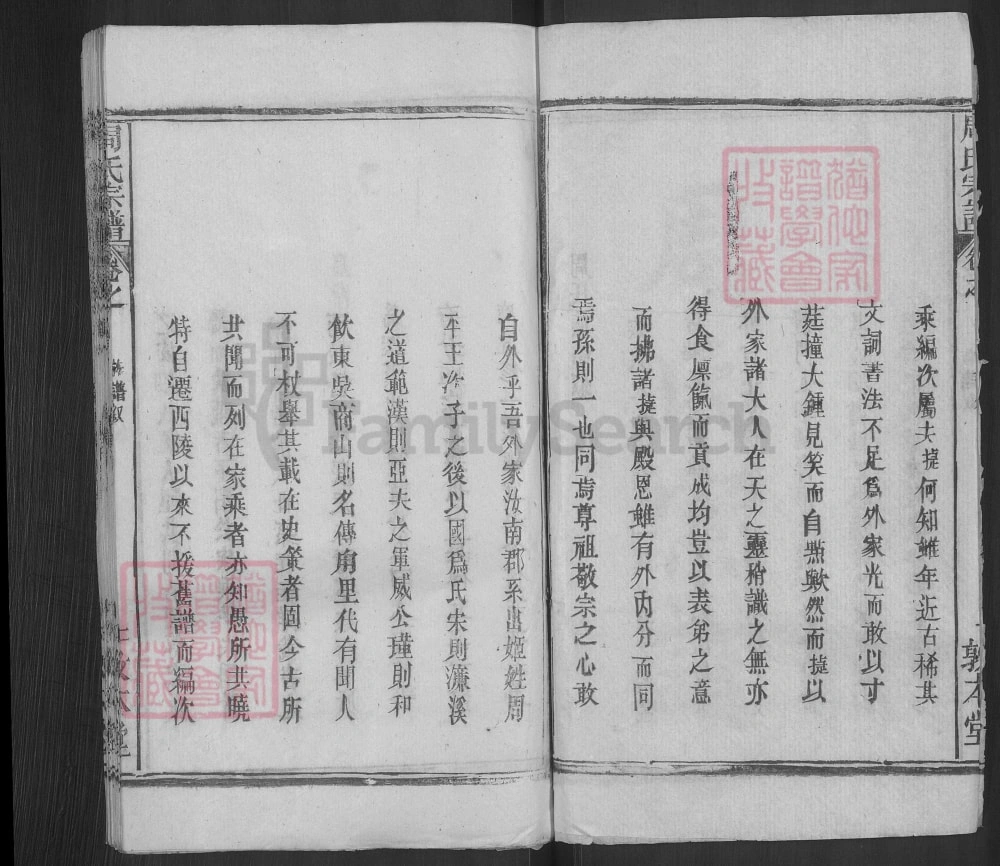 周氏宗譜
卷之
敦本堂
乘編次屬夫㨗何知雖年近古稀其
文詞書法不足爲外家光而敢以寸
莛撞大鍾見笑而自㸃歟然而㨗以
外家諸大人在天之靈稍識之無亦
得食廩餼而貢成均豈以表弟之意
而拂諸㨗與殿恩雖有外內分而同
焉孫則一也同焉尊祖敬宗之心敢
自外乎吾外家汝南郡系出姬姓周
平王次子之後以國爲氏宋則濂溪
之道範漢則亞夫之軍威公瑾則和
飲東吳商山則名傳甪里代有聞人
不可杖舉其載在史策者固今古所
共聞而列在家乘者亦知愚所共曉
特自遷西陵以來不援舊譜而編次
周氏宗譜
卷之
譜叙
敦本堂
猶他家
譜學會
收藏
猶他家
譜學會
收藏
FamilySearch